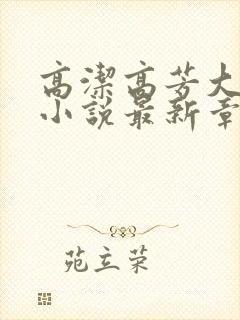 高潔高芳大
小說最新章
苑立荣